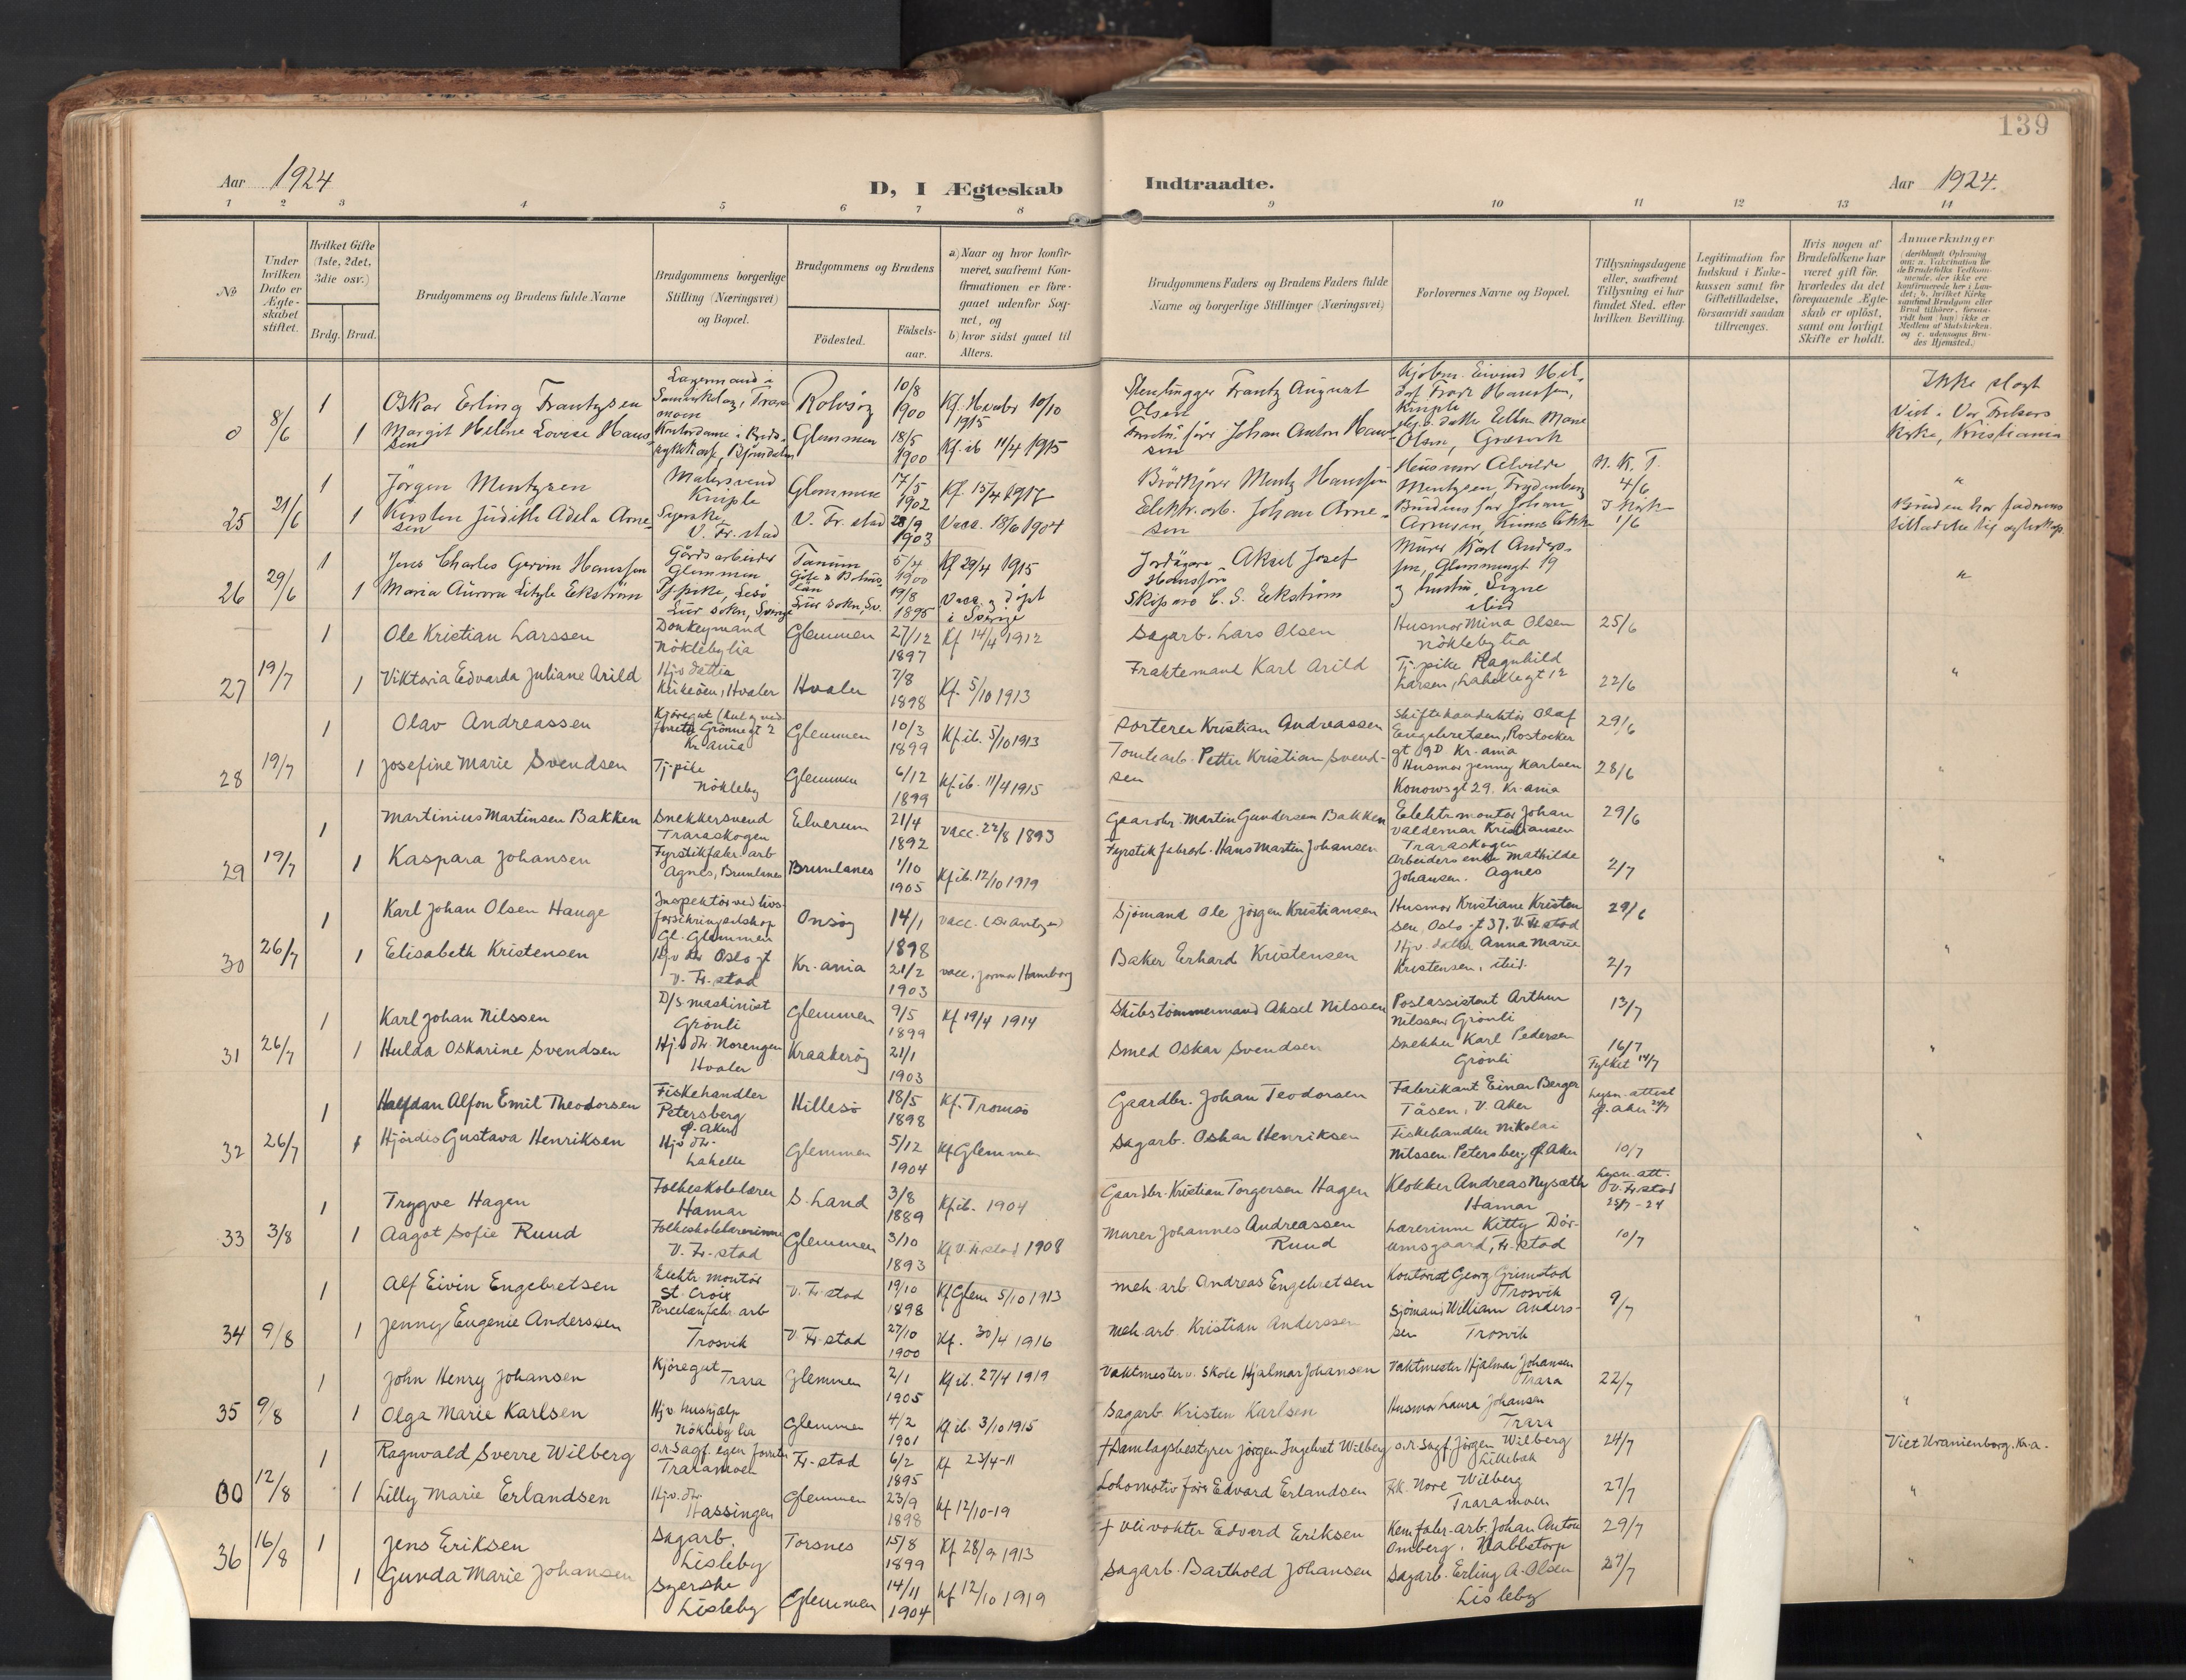 139
Aar 1924
D, I Ægteskab
Indtraadte.
Aar 1924.
1 2 3 4 5 6 7 8 9 10 11 12 13 14
No
Under hvilken Dato er Ægteskabet stiftet.
Hvilket Gifte (1ste, 2det, 3die osv.)
Brdg. Brud.
Brudgommens og Brudens fulde Navne
Brudgommens borgerlige Stilling (Næringsvei) og Bopæl.
Brudgommens og Brudens
Födested.
Födsels-aar.
a) Naar og hvor konfirmeret, saafremt Konfirmationen er foregaaet udenfor Sognet, og
b) hvor sidst gaaet til Alters.
Brudgommens Faders og Brudens Faders fulde Navne og borgerlige Stillinger (Næringsvei)
Forlovernes Navne og Bopæl.
Tillysningsdagene eller, saafremt Tillysning ei har fundet Sted, efter hvilken Bevilling.
Legitimation for Indskud i Enkekassen samt for Giftetilladelse, forsaavidt saadan tiltrænges.
Hvis nogen af Brudefolkene har været gift för, hvorledes da det foregaaende Ægteskab er oplöst, samt om lovligt Skifte er holdt.
Anmærkninger (deriblandt Oplysning om: a. Vakcination for de Brudefolks Vedkommende, der ikke ere konfirmerede her i Landet; b. hvilket Kirke samfund Brudgom eller Brud tilhörer, forsaavidt han (hun) ikke er Medlem af Statskirken, og c. udensogns Brudes Hjemsted.)
0 8/6 1 Oskar Erling Frantzsen Lagermand i Rolvsöy 10/8 1900 Kf. Hvaler 10/10 1915 Stenhugger Frantz August Olsen Ikke slegt
1 Margit Helene Lovise Hanssen Glemmen 18/5 1900 Kf. ib 11/4 1915 Johan Anton Hanssen Olsen, Græsvik Viet i Vor Frelsers Kirke, Kristiania
25 21/6 1 Jörgen Mentzsen Malersvend Kniple Glemmen 17/5 1902 Kf. 15/4 1917 Brödkjörer Mentz Hanssen Husmor Alvilde Mentzsen, Trydenberg N. K. T. 4/6 "
1 Kirsten Judith Adela Arnesen Syerske V. Fr. stad V. Fr. stad 28/9 1903 Vacc. 18/6 1904 Elektr. arb. Johan Arnesen Brudens far Johan Arnesen 1/6 Bruden har faderens
26 29/6 1 Jens Charles Gervin Hanssen Gårdsarbeider Glemmen Tanum 5/4 1900 Kf 29/4 1915 Jordägare Aksel Josef Murer Karl Anderssen, Glemmengt 19 "
1 Maria Aurora Ekström Lur sokn, Sverige Lur sokn, Sv. 19/8 1895 Vacc. og döpt i Sverige C. G. Ekström og hustru Signe ibid
27 19/7 1 Ole Kristian Larssen Donkeymand Nöklebylia Glemmen 27/12 1897 Kf 14/4 1912 Sagarb. Lars Olsen Husmor Mina Olsen Nöklebylia 25/6
1 Viktoria Edvarda Juliane Arild Hjv. datter Kirkeöen, Hvaler Hvaler 7/8 1898 Kf. 5/10 1913 Fraktemand Karl Arild Tj. pike Ragnhild Larsen, Lahellegt 12 22/6 "
28 19/7 1 Olav Andreassen Kjöregut Grönnegt 2 Kr.ania Glemmen 10/3 1899 Kf ib. 5/10 1913 Sorterer Kristian Andreassen Skiftekonduktör Olaf Engebretsen, Rostocker gt 9D Kr.ania 29/6
1 Josefine Marie Svendsen Tj. pike Nökleby Glemmen 6/12 1899 Kf ib. 11/4 1915 Tomtearb. Petter Kristian Svendsen Husmor Jenny Karlsen Konowsgt 29. Kr.ania 28/6 "
29 19/7 1 Martinius Martinsen Bakken Snekkersvend Traraskogen Elverum 21/4 1892 vacc. 22/8 1893 Gaardbr. Martin Gundersen Bakken Elektr. montör Johan Valdemar Kristiansen Traraskogen 29/6
1 Kaspara Johansen Fyrstikfabr. arb Agnes, Brunlanes Brunlanes 1/10 1905 Kf ib. 12/10 1919 Fyrstikfabrarb. Hans Martin Johansen Arbeiders enke Mathilde Johansen. Agnes 2/7 "
30 26/7 1 Karl Johan Olsen Hauge Inspektör ved livsforsikringselskap Gl. Glemmen Onsöy 14/1 1898 vacc. Sjömand Ole Jörgen Kristiansen Husmor Kristiane Kristensen, Oslogt 37. V. Fr.stad 29/6
1 Elisabeth Kristensen Hjv. dtr Oslogt V. Fr.stad Kr.ania 21/2 1903 vacc. Baker Erhard Kristensen Hjv. datter Anna Marie Kristensen, ibid. 2/7 "
31 26/7 1 Karl Johan Nilssen D/S maskinist Grönli Glemmen 9/5 1899 Kf 19/4 1914 Skibstömmermand Aksel Nilssen Postassistent Arthur Nilssen Grönli 13/7
1 Hulda Oskarine Svendsen Hjv. dtr. Norengen Hvaler Kraakeröy 21/1 1903 Smed Oskar Svendsen Snekker Karl Pedersen Grönli 16/7 Fylket 14/7 "
32 26/7 1 Halfdan Alfon Emil Theodorsen Fiskehandler Petersberg Ö. Aker Hillesö 18/5 1898 Kf. Tromsö Gaardbr. Johan Teodorsen Fabrikant Einar Berger Tåsen, V. Aker Lysn. attest Ö. Aker 24/7
1 Hjördis Gustava Henriksen Hjv. dtr. Lahelle Glemmen 5/12 1904 Kf Glemmen Sagarb. Oskar Henriksen Fiskehandler Nikolai Nilssen. Petersberg, Ö. Aker 10/7 "
33 3/8 1 Trygve Hagen Folkeskolelærer Hamar S. Land 3/8 1889 Kf ib. 1904 Gaardbr. Kristian Torgersen Hagen Klokker Andreas Nysæth Hamar Lysn. att. V. Fr.stad 25/7 - 24
1 Aagot Sofie Ruud Folkeskolelærerinne V. Fr.stad Glemmen 3/10 1893 Kf V. Fr.stad 1908 Murer Johannes Andreassen Ruud Lærerinne Kitty Dörumsgaard, Fr.stad 10/7 "
34 9/8 1 Alf Eivin Engebretsen Elektr. montör St. Croix V. Fr.stad 19/10 1898 Kf Glem 5/10 1913 Mek. arb. Andreas Engebretsen Kontorist Georg Grimstad Trosvik 9/7
1 Jenny Eugenie Anderssen Porcelænfabr. arb Trosvik V. Fr.stad 27/10 1900 Kf. 30/4 1916 Mek. arb. Kristian Anderssen Sjömand William Anderssen Trosvik "
35 9/8 1 John Henry Johansen Kjöregut Trara Glemmen 2/1 1905 Kf ib. 27/4 1919 Vaktmester v. Skole Hjalmar Johansen Vaktmester Hjalmar Johansen Trara 22/7
1 Olga Marie Karlsen Hjv. hushjælp Nökleby lia Glemmen 4/2 1901 Kf ib. 3/10 1915 Sagarb. Kristen Karlsen Husmor Laura Johansen Trara "
00 12/8 1 Ragnvald Sverre Wilberg o.r. Sagf. egen forretn. Traramoen Fr.stad 6/2 1895 Kf 23/4-11 † Samlagsbestyrer Jörgen Ingebret Wilberg o.r. Sagf. Jörgen Wilberg Lillebæk 24/7 Viet Uranienborg. Kr.a.
1 Lilly Marie Erlandsen Hjv. dtr. Hassingen Glemmen 23/9 1898 Kf 12/10-19 Lokomotivförer Edvard Erlandsen Frk. Nore Wilberg Traramoen 27/7 "
36 16/8 1 Jens Eriksen Sagarb. Lisleby Torsnes 15/8 1899 Kf 28/9 1913 † Veivokter Edvard Eriksen Kem. fabr. arb. Johan Anton Omberg, Nabbetorp 29/7
1 Gunda Marie Johansen Syerske Lisleby Glemmen 14/11 1904 Kf 12/10 1919 Sagarb. Barthold Johansen Sagarb. Erling A. Olsen Lisleby 27/7 "